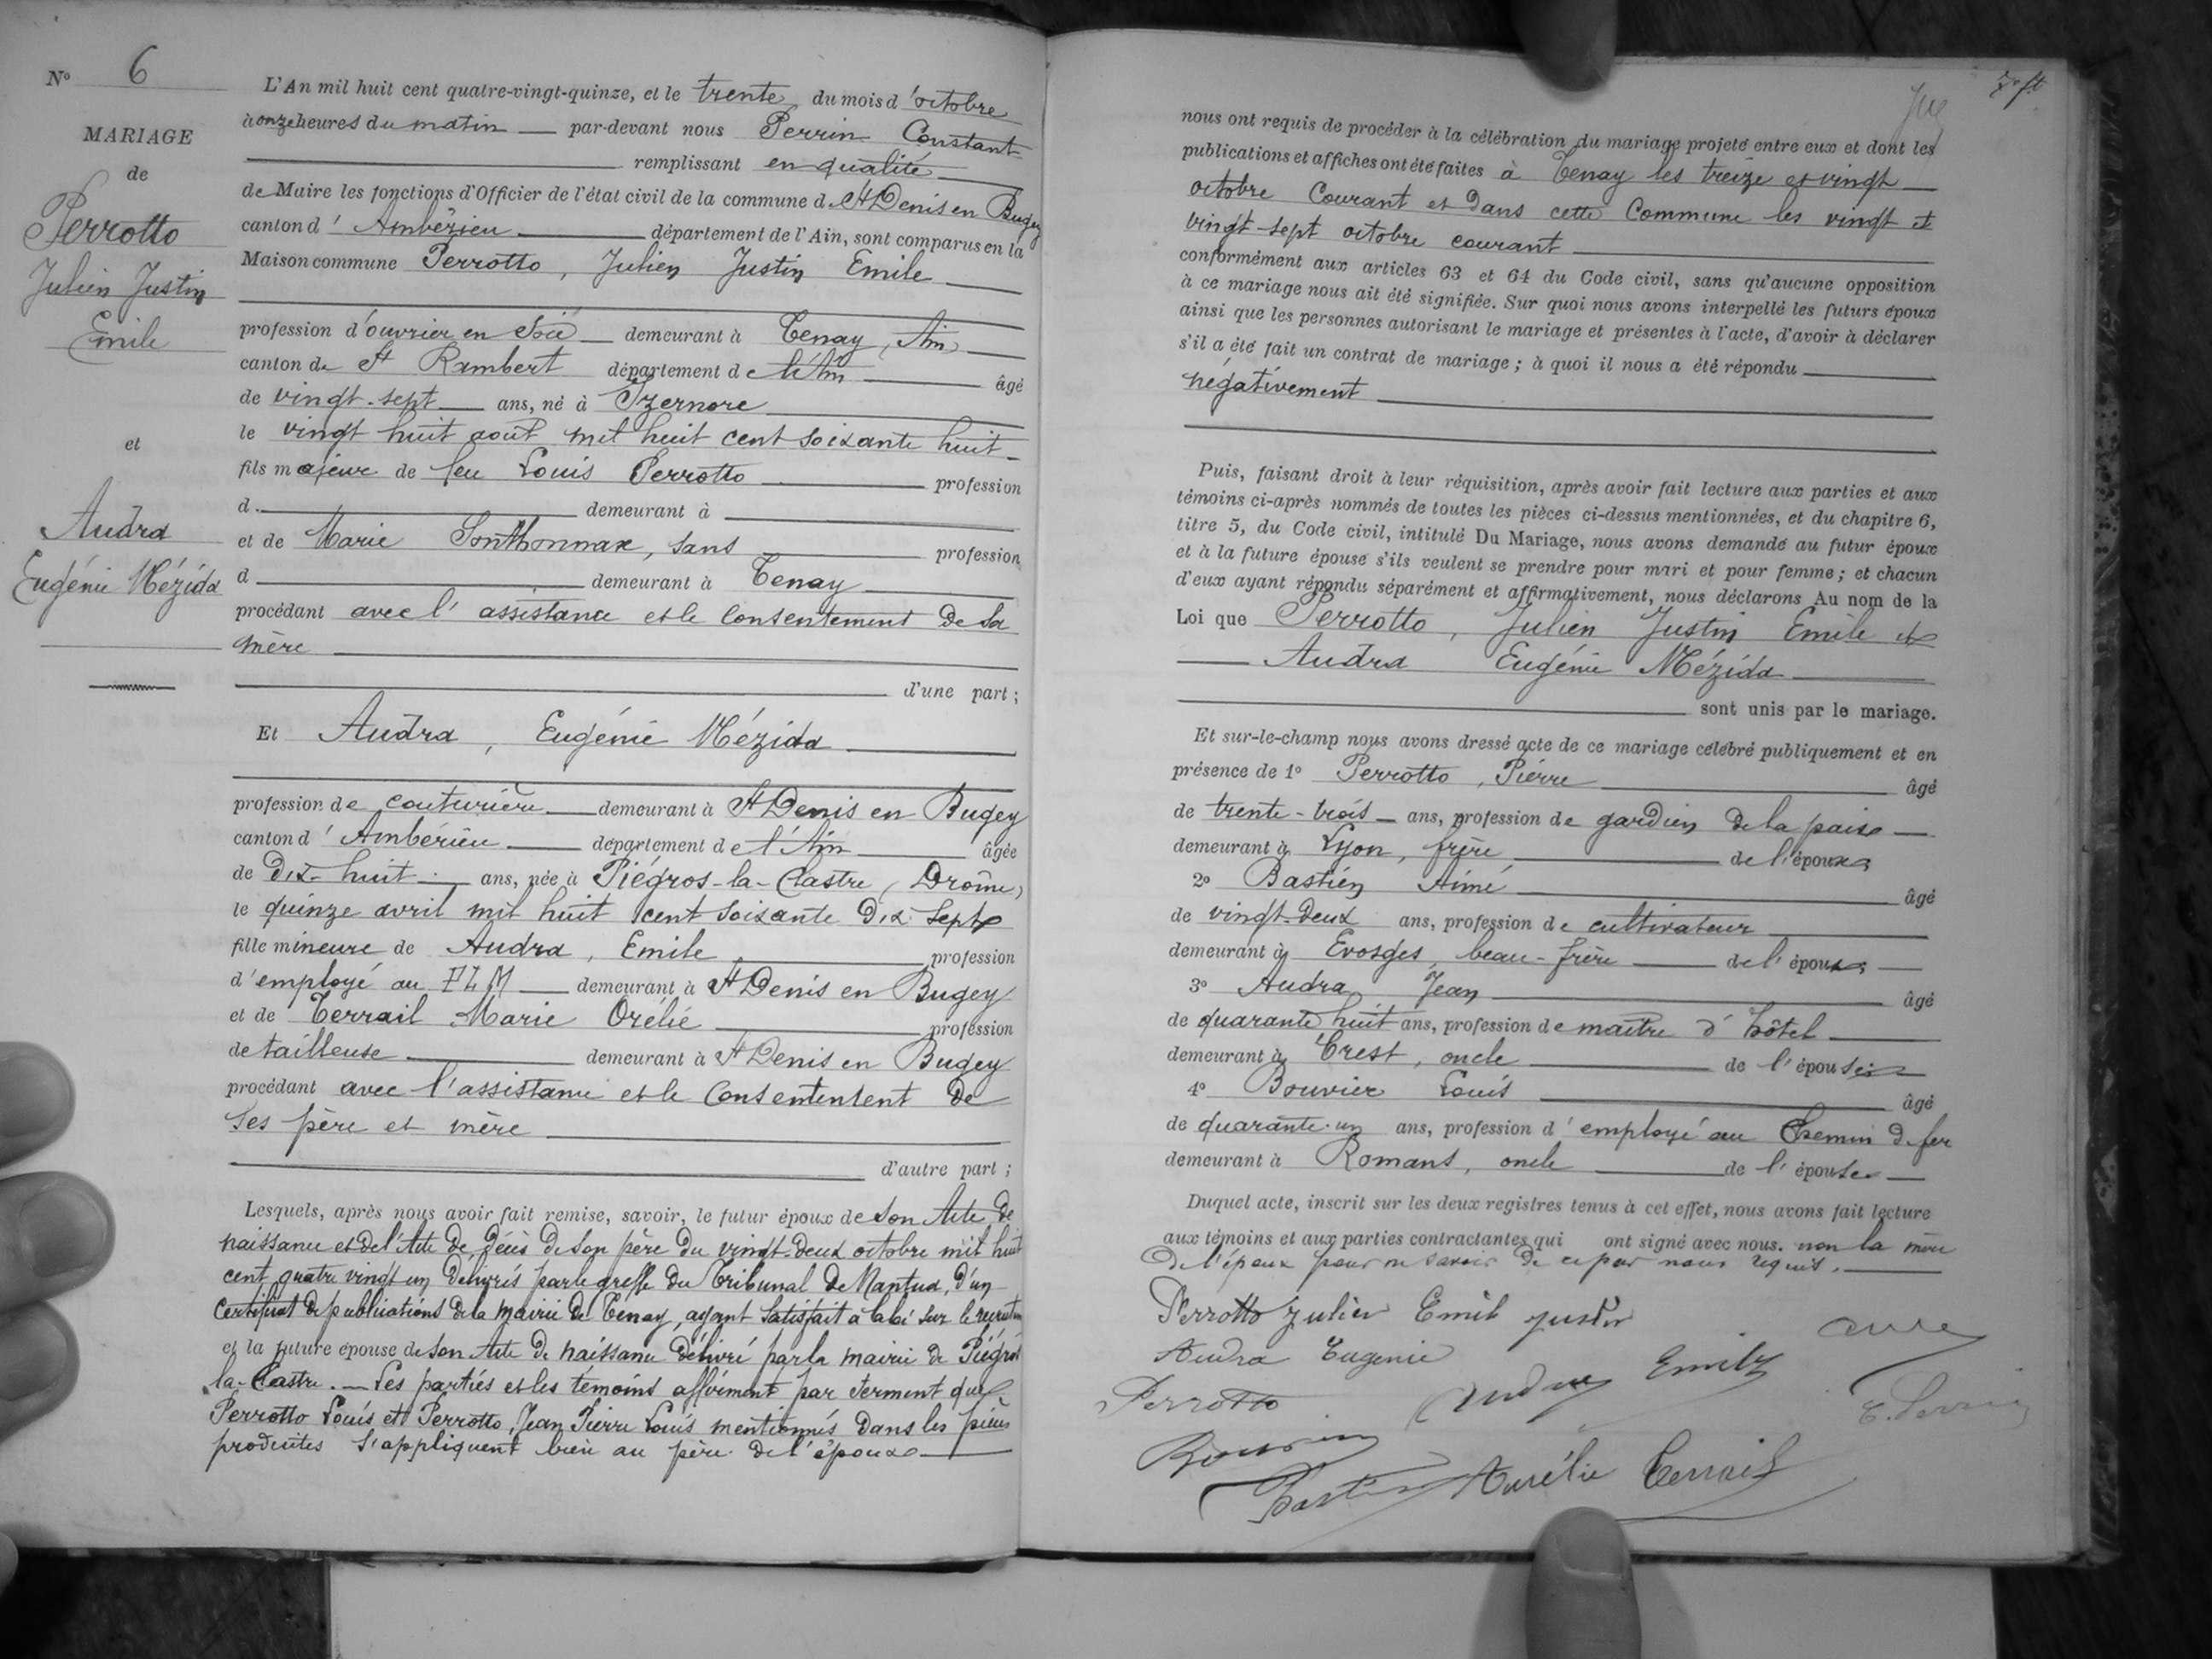 N° 6
MARIAGE
de
Perrotto
Julien Justin
Emile
et
Audra
Eugénie Mézida
L'An mil huit cent quatre-vingt-quinze, et le trente du mois d'octobre
à onze heures du matin par-devant nous Perrin Constant
remplissant en qualité
de Maire les fonctions d'Officier de l'état civil de la commune d. St Denis en Bugey
canton d'Ambérieu département de l'Ain, sont comparus en la
Maison commune Perrotto, Julien Justin Emile
profession d'ouvrier en Soie demeurant à Tenay, Ain
canton de St Rambert département de l'Ain âgé
de vingt-sept ans, né à Izernore
le vingt huit août mil huit cent soixante huit
fils majeur de feu Louis Perrotto profession
d. demeurant à
et de Marie Sonthonnax, sans profession
d demeurant à Tenay
procédant avec l'assistance et le Consentement de sa
mère
d'une part;
Et Audra, Eugénie Mézida
profession de couturière demeurant à St Denis en Bugey
canton d'Ambérieu département de l'Ain âgée
de Dix-huit ans, née à Piégros-la-Clastre (Drôme)
le quinze avril mil huit cent soixante Dix Sept
fille mineure de Audra, Emile profession
d'employé au PLM demeurant à St Denis en Bugey
et de Terrail Marie Orélie profession
de tailleuse demeurant à St Denis en Bugey
procédant avec l'assistance et le Consentensent de
Ses père et mère
d'autre part;
Lesquels, après nous avoir fait remise, savoir, le futur époux de son Acte de
naissance et de l'Acte de Décès de son père du vingt-deux octobre mil huit
cent quatre vingt un délivrés par le greffe du Tribunal de Nantua, d'un
Certificat de publications de la mairie de Tenay, ayant Satisfait à la loi sur le recrutem
et la future épouse de son Acte de naissance délivré par la mairie de Piégros
la-Clastre. — Les parties et les temoins affirment par serment que
Perrotto Louis et Perrotto, Jean Pierre Louis mentionnés dans les pièces
produites s'appliquent bien au père de l'époux
nous ont requis de procéder à la célébration du mariage projeté entre eux et dont les
publications et affiches ont été faites à Tenay les treize et vingt
octobre Courant et Dans cette Commune les vingt et
vingt-sept octobre courant
conformément aux articles 63 et 64 du Code civil, sans qu'aucune opposition
à ce mariage nous ait été signifiée. Sur quoi nous avons interpellé les futurs époux
ainsi que les personnes autorisant le mariage et présentes à l'acte, d'avoir à déclarer
s'il a été fait un contrat de mariage; à quoi il nous a été répondu
négativement
Puis, faisant droit à leur réquisition, après avoir fait lecture aux parties et aux
témoins ci-après nommés de toutes les pièces ci-dessus mentionnées, et du chapitre 6,
titre 5, du Code civil, intitulé Du Mariage, nous avons demandé au futur époux
et à la future épouse s'ils veulent se prendre pour mari et pour femme; et chacun
d'eux ayant répondu séparément et affirmativement, nous déclarons Au nom de la
Loi que Perrotto, Julien Justin Emile et
Audra Eugénie Mézida
sont unis par le mariage.
Et sur-le-champ nous avons dressé acte de ce mariage célébré publiquement et en
présence de 1° Perrotto, Pierre âgé
de trente-trois ans, profession de gardien de la paix
demeurant à Lyon, frère de l'époux
2° Bastien Aimé âgé
de vingt-deux ans, profession de cultivateur
demeurant à Evosges, beau-frère de l'époux
3° Audra Jean âgé
de quarante huit ans, profession de maître d'hôtel
demeurant à Crest, oncle de l'épouse
4° Bouvier Louis âgé
de quarante-un ans, profession d'employé au Chemin de fer
demeurant à Romans, oncle de l'épouse
Duquel acte, inscrit sur les deux registres tenus à cet effet, nous avons fait lecture
aux témoins et aux parties contractantes qui ont signé avec nous. non la mère
de l'époux pour ne savoir de ce par nous requis.
Perrotto Julien Emile Justin
Audra Eugenie
Perrotto Emile
C. Perrin
Bouvier
Bastien Aurélie Terrail